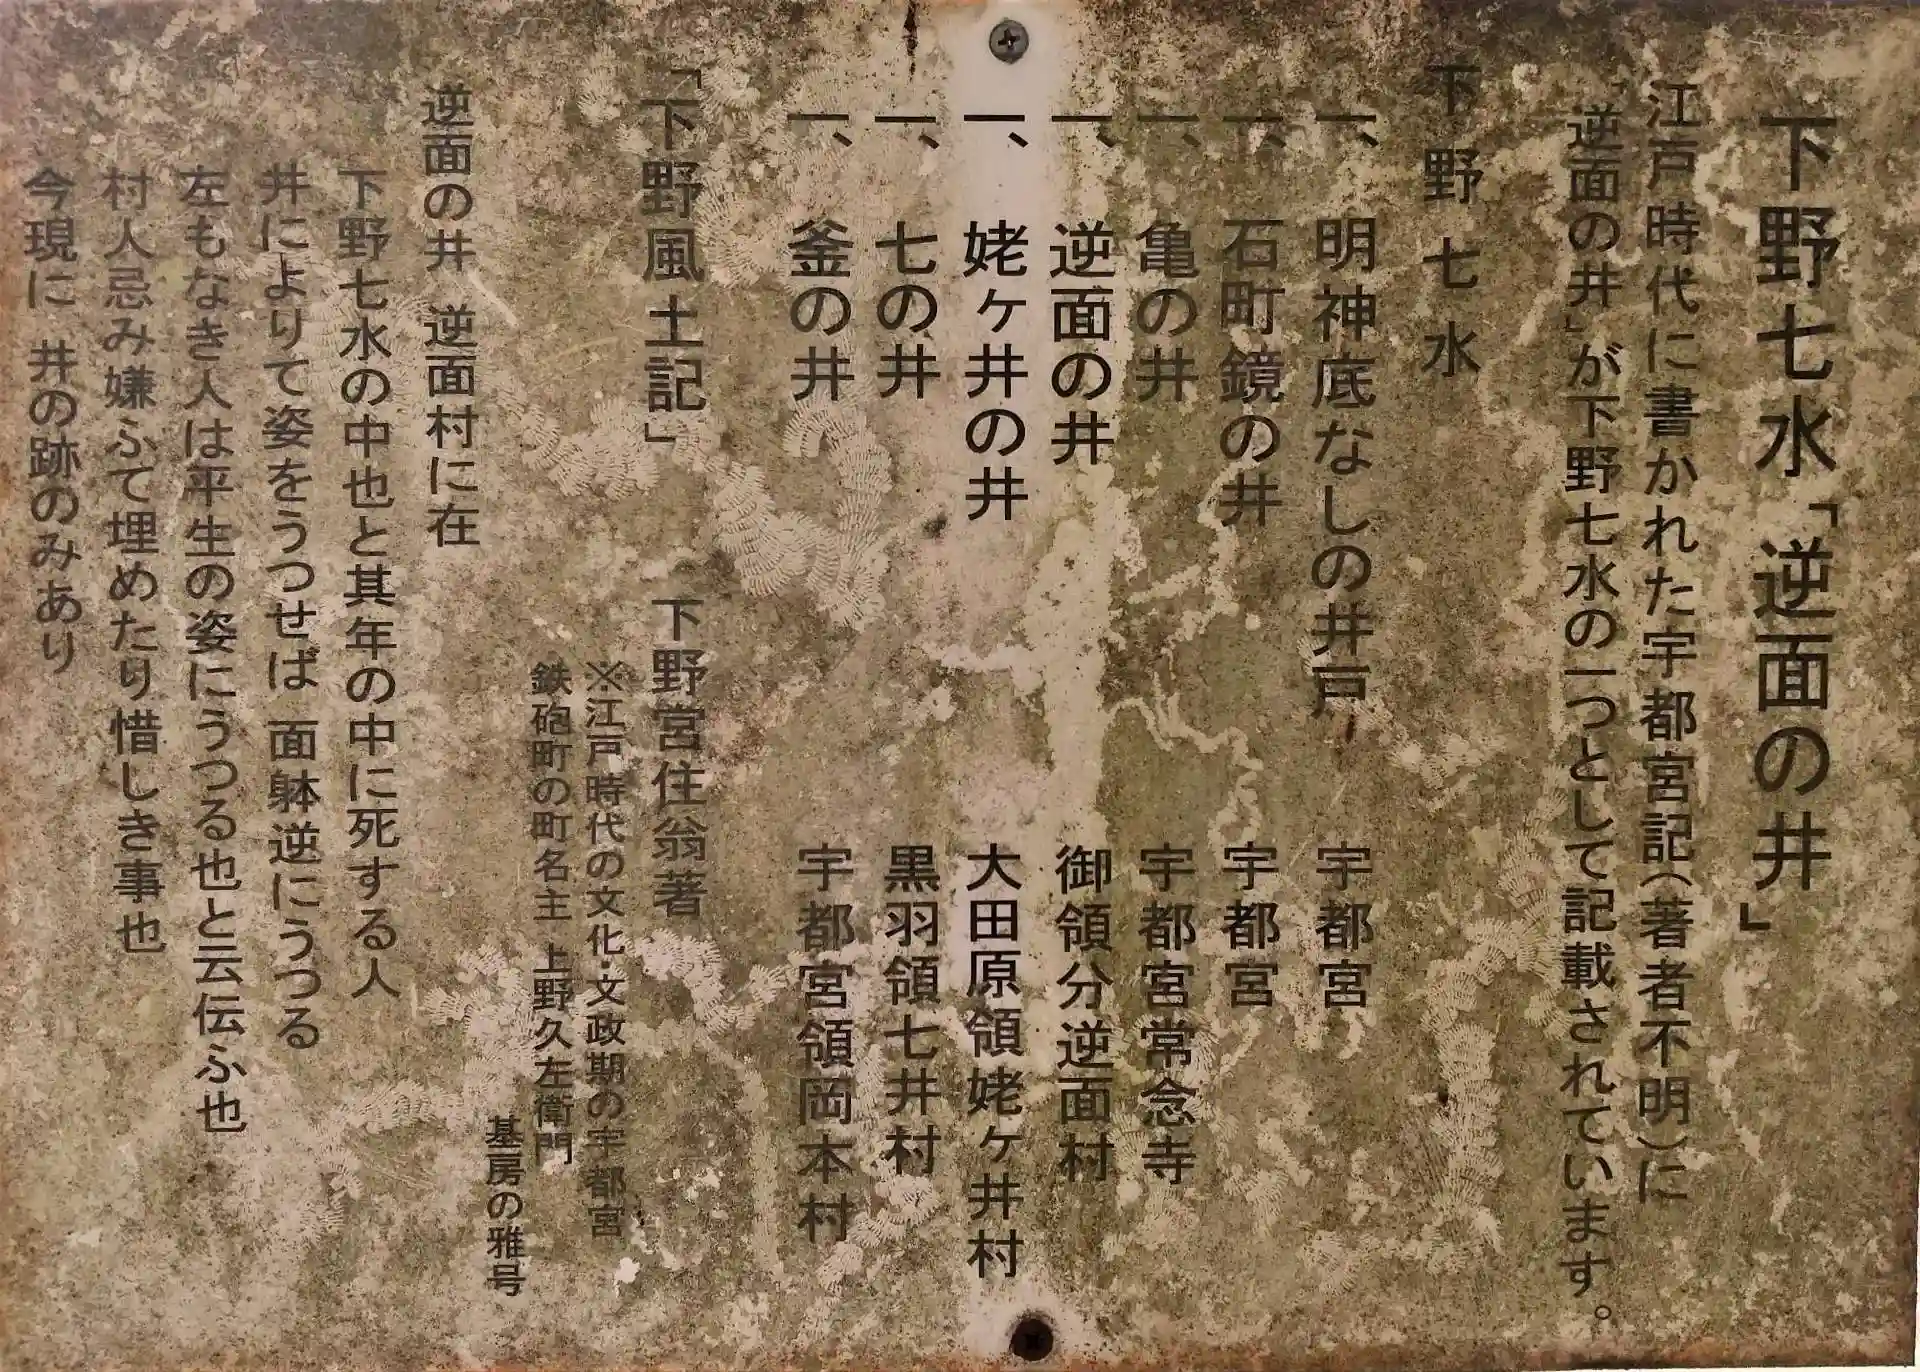 下野七水「逆面の井」
江戸時代に書かれた宇都宮記(著者不明)に
逆面の井」が下野七水の一つとして記載されています。
下野七水
一、明神底なしの井戸 宇都宮
一、石町鏡の井 宇都宮
一、亀の井 宇都宮常念寺
一、逆面の井 御領分逆面村
一、姥ヶ井の井 大田原領姥ヶ井村
一、七の井 黒羽領七井村
一、釜の井 宇都宮領岡本村
「下野風土記」 下野宮住翁著
※江戸時代の文化文政期の宇都宮
鉄砲町の町名主 上野久左衛門
基房の雅号
逆面の井 逆面村に在
下野七水の中也と其年の中に死する人
井によりて姿をうつせば 面躰逆にうつる
左もなき人は平生の姿にうつる也と云伝ふ也
村人忌み嫌ふて埋めたり惜しき事也
今現に 井の跡のみあり